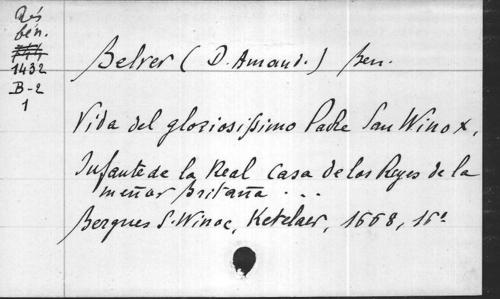 Rés
bén.
1432
B-2
1
Belver (D. Amand.) Ben.
Vida del gloriosissimo Padre San Winox,
Infante de la Real Casa de los Reyes de la
menor Britaña ...
Bergues S. Winoc, Ketelaer, 1668, 16º